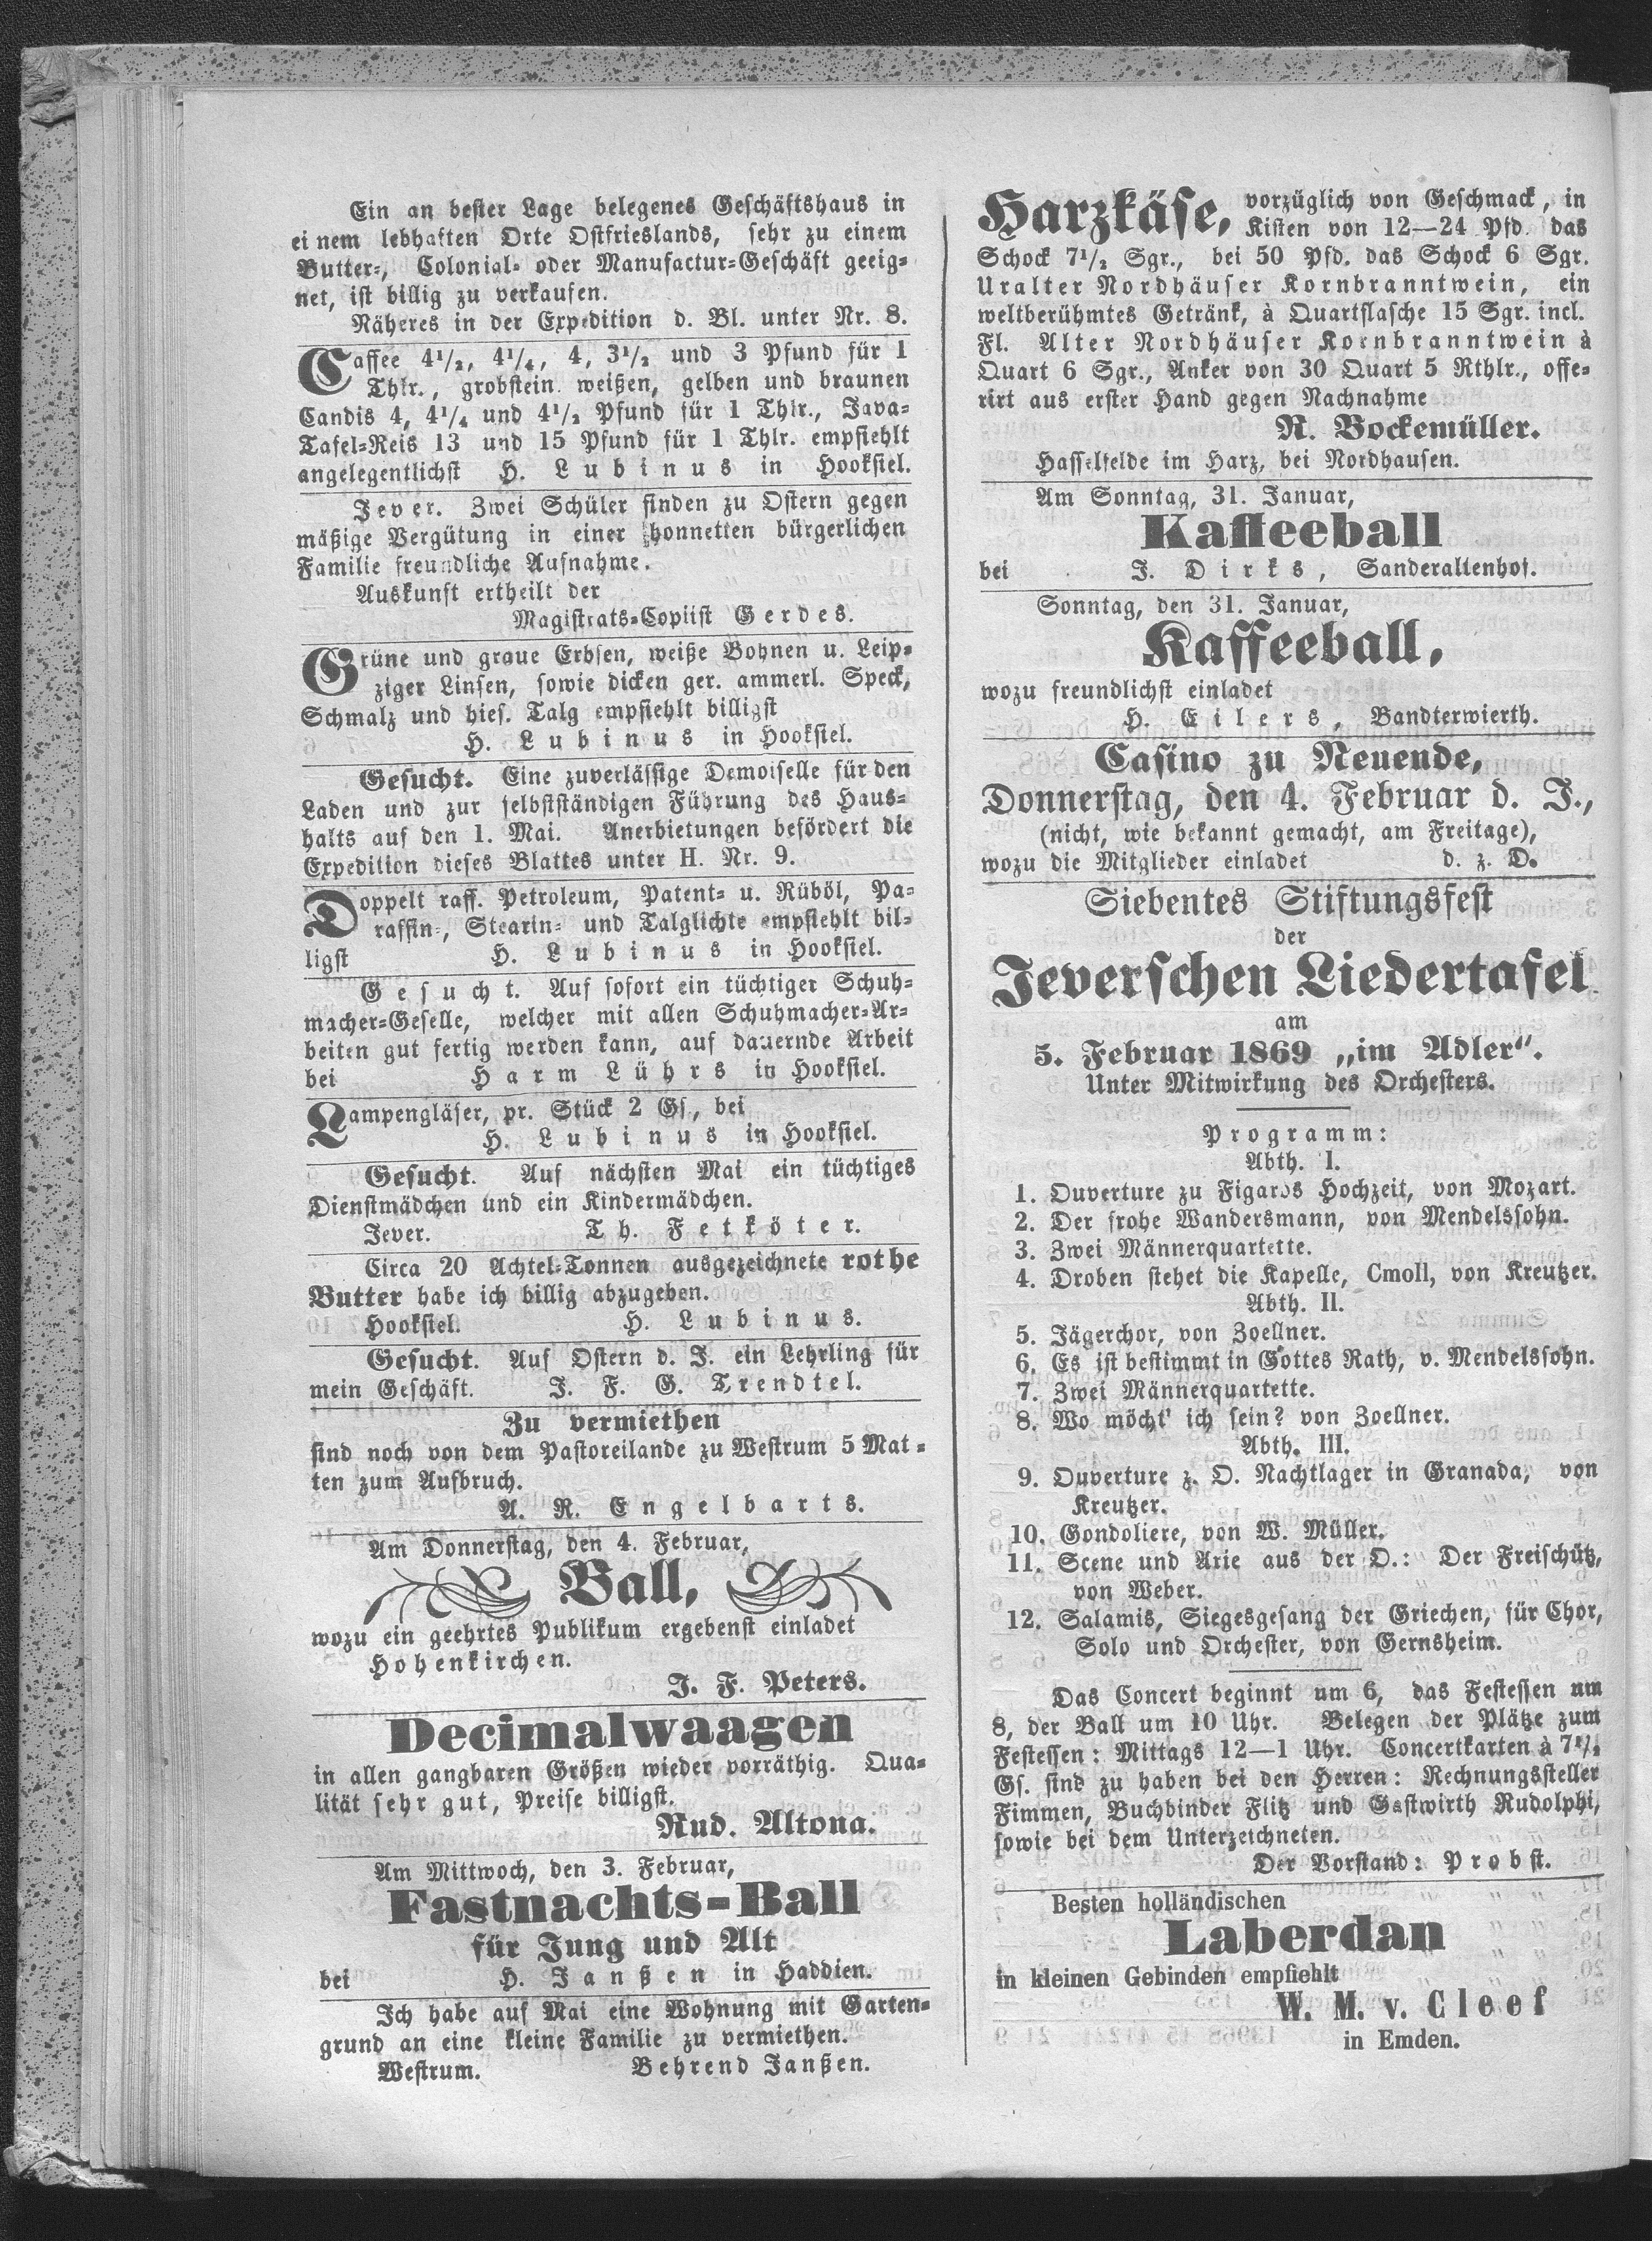 Ein an bester Lage belegenes Geschäftshaus in
einem lebhaften Orte Ostfrieslands, sehr zu einem
Butter-, Colonial- oder Manufactur-Geschäft geeig-
net, ist billig zu verkaufen.
Näheres in der Expedition d. Bl. unter Nr. 8.
Caffee 4½, 4¼, 4, 3½ und 3 Pfund für 1
Thlr., grobstein. weißen, gelben und braunen
Candis 4, 4¼ und 4½ Pfund für 1 Thlr., Java-
Tafel-Reis 13 und 15 Pfund für 1 Thlr. empfiehlt
angelegentlichst H. Lubinus in Hooksiel.
Jever. Zwei Schüler finden zu Ostern gegen
mäßige Vergütung in einer honnetten bürgerlichen
Familie freundliche Aufnahme.
Auskunft ertheilt der
Magistrats-Copiist Gerdes.
Grüne und graue Erbsen, weiße Bohnen u. Leip-
ziger Linsen, sowie dicken ger. ammerl. Speck,
Schmalz und hies. Talg empfiehlt billigst
H. Lubinus in Hooksiel.
Gesucht. Eine zuverlässige Demoiselle für den
Laden und zur selbstständigen Führung des Haus-
halts auf den 1. Mai. Anerbietungen befördert die
Expedition dieses Blattes unter H. Nr. 9.
Doppelt raff. Petroleum, Patent- u. Rüböl, Pa-
raffin-, Stearin- und Talglichte empfiehlt bil-
ligst H. Lubinus in Hooksiel.
Gesucht. Auf sofort ein tüchtiger Schuh-
macher-Geselle, welcher mit allen Schuhmacher-Ar-
beiten gut fertig werden kann, auf dauernde Arbeit
bei Harm Lührs in Hooksiel.
Lampengläser, pr. Stück 2 Gs., bei
H. Lubinus in Hooksiel.
Gesucht. Auf nächsten Mai ein tüchtiges
Dienstmädchen und ein Kindermädchen.
Jever. Th. Fetköter.
Circa 20 Achtel-Tonnen ausgezeichnete rothe
Butter habe ich billig abzugeben.
Hooksiel. H. Lubinus.
Gesucht. Auf Ostern d. J. ein Lehrling für
mein Geschäft. J. F. G. Trendtel.
Zu vermiethen
sind noch von dem Pastoreilande zu Westrum 5 Mat-
ten zum Aufbruch.
A. R. Engelbarts.
Am Donnerstag, den 4. Februar,
Ball,
wozu ein geehrtes Publikum ergebenst einladet
Hohenkirchen.
J. F. Peters.
Decimalwaagen
in allen gangbaren Größen wieder vorräthig. Qua-
lität sehr gut, Preise billigst.
Rud. Altona.
Am Mittwoch, den 3. Februar,
Fastnachts-Ball
für Jung und Alt
bei H. Janßen in Haddien.
Ich habe auf Mai eine Wohnung mit Garten-
grund an eine kleine Familie zu vermiethen.
Westrum. Behrend Janßen.
Harzkäse, vorzüglich von Geschmack, in
Kisten von 12—24 Pfd. das
Schock 7½ Sgr., bei 50 Pfd. das Schock 6 Sgr.
Uralter Nordhäuser Kornbranntwein, ein
weltberühmtes Getränk, à Quartflasche 15 Sgr. incl.
Fl. Alter Nordhäuser Kornbranntwein à
Quart 6 Sgr., Anker von 30 Quart 5 Rthlr., offe-
rirt aus erster Hand gegen Nachnahme
R. Bockemüller.
Hasselfelde im Harz, bei Nordhausen.
Am Sonntag, 31. Januar,
Kaffeeball
bei J. Dirks, Sanderaltenhof.
Sonntag, den 31. Januar,
Kaffeeball,
wozu freundlichst einladet
H. Eilers, Bandterwierth.
Casino zu Neuende,
Donnerstag, den 4. Februar d. J.,
(nicht, wie bekannt gemacht, am Freitage),
wozu die Mitglieder einladet d. z. D.
Siebentes Stiftungsfest
der
Jeverschen Liedertafel
am
5. Februar 1869 „im Adler“.
Unter Mitwirkung des Orchesters.
Programm:
Abth. I.
1. Ouverture zu Figaros Hochzeit, von Mozart.
2. Der frohe Wandersmann, von Mendelssohn.
3. Zwei Männerquartette.
4. Droben stehet die Kapelle, Cmoll, von Kreutzer.
Abth. II.
5. Jägerchor, von Zoellner.
6. Es ist bestimmt in Gottes Rath, v. Mendelssohn.
7. Zwei Männerquartette.
8. Wo möcht' ich sein? von Zoellner.
Abth. III.
9. Ouverture z. O. Nachtlager in Granada, von
Kreutzer.
10. Gondoliere, von W. Müller.
11. Scene und Arie aus der O.: Der Freischütz,
von Weber.
12. Salamis, Siegesgesang der Griechen, für Chor,
Solo und Orchester, von Gernsheim.
Das Concert beginnt um 6, das Festessen um
8, der Ball um 10 Uhr. Belegen der Plätze zum
Festessen: Mittags 12—1 Uhr. Concertkarten à 7½
Gs. sind zu haben bei den Herren: Rechnungssteller
Fimmen, Buchbinder Flitz und Gastwirth Rudolphi,
sowie bei dem Unterzeichneten.
Der Vorstand: Probst.
Besten holländischen
Laberdan
in kleinen Gebinden empfiehlt
W. M. v. Cleef
in Emden.